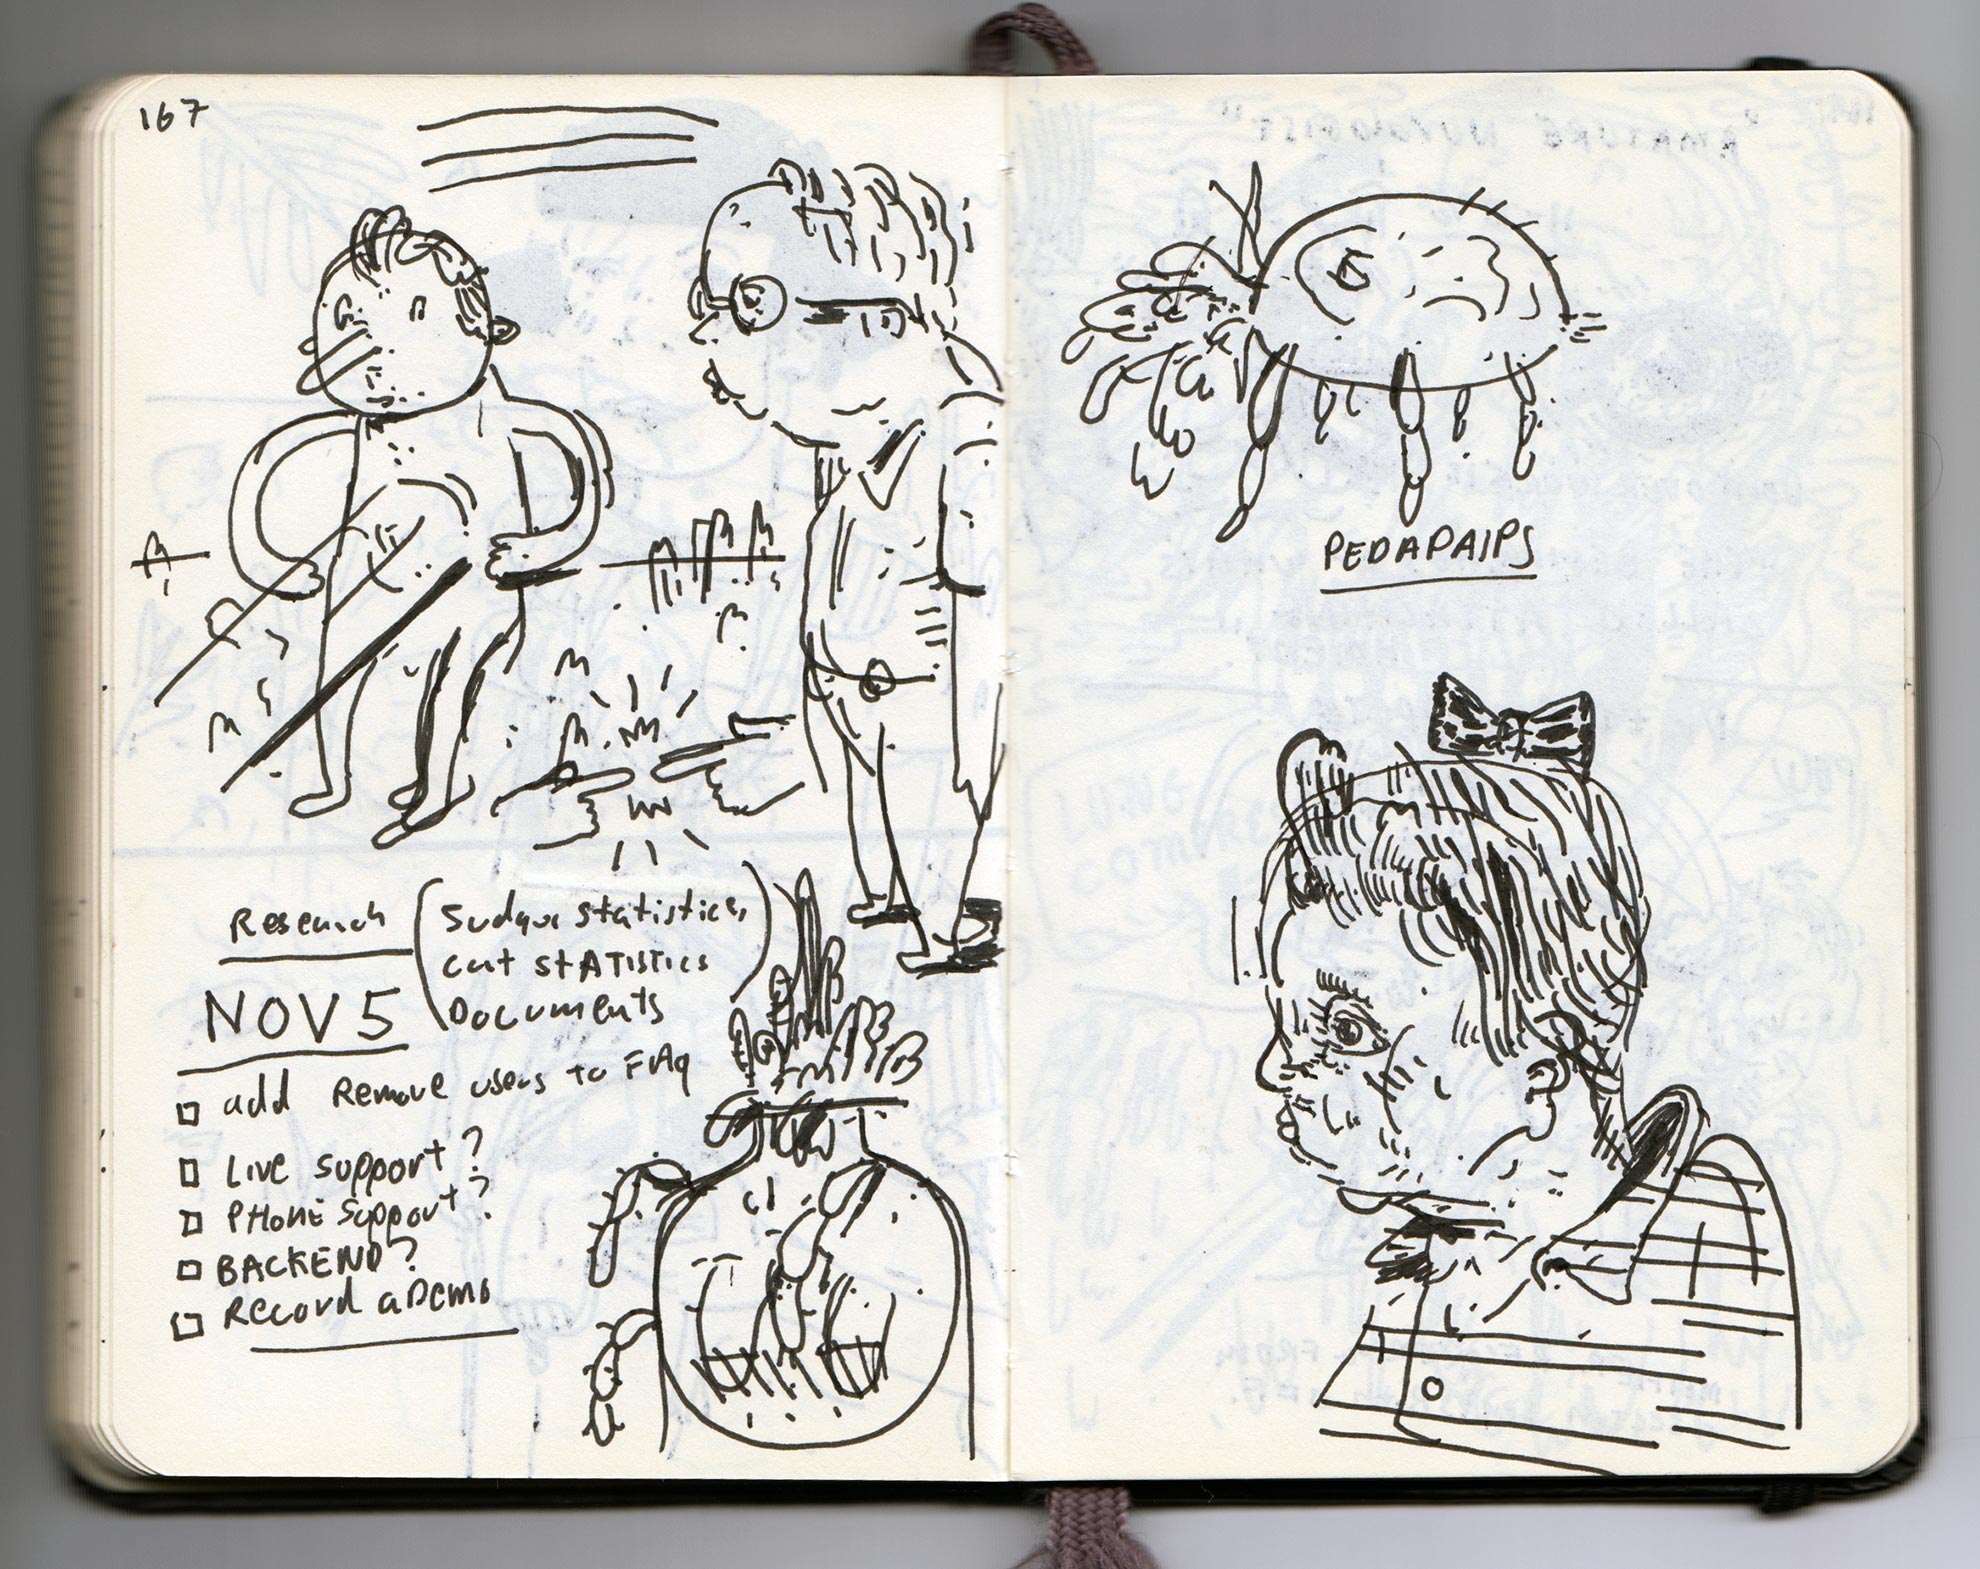 167
Research
statistics,
cat statistics
Documents
NOV 5
add Remove users to FAQ
Live support?
PHONE support?
BACKEND?
Record a Demo
PEDAPAIPS